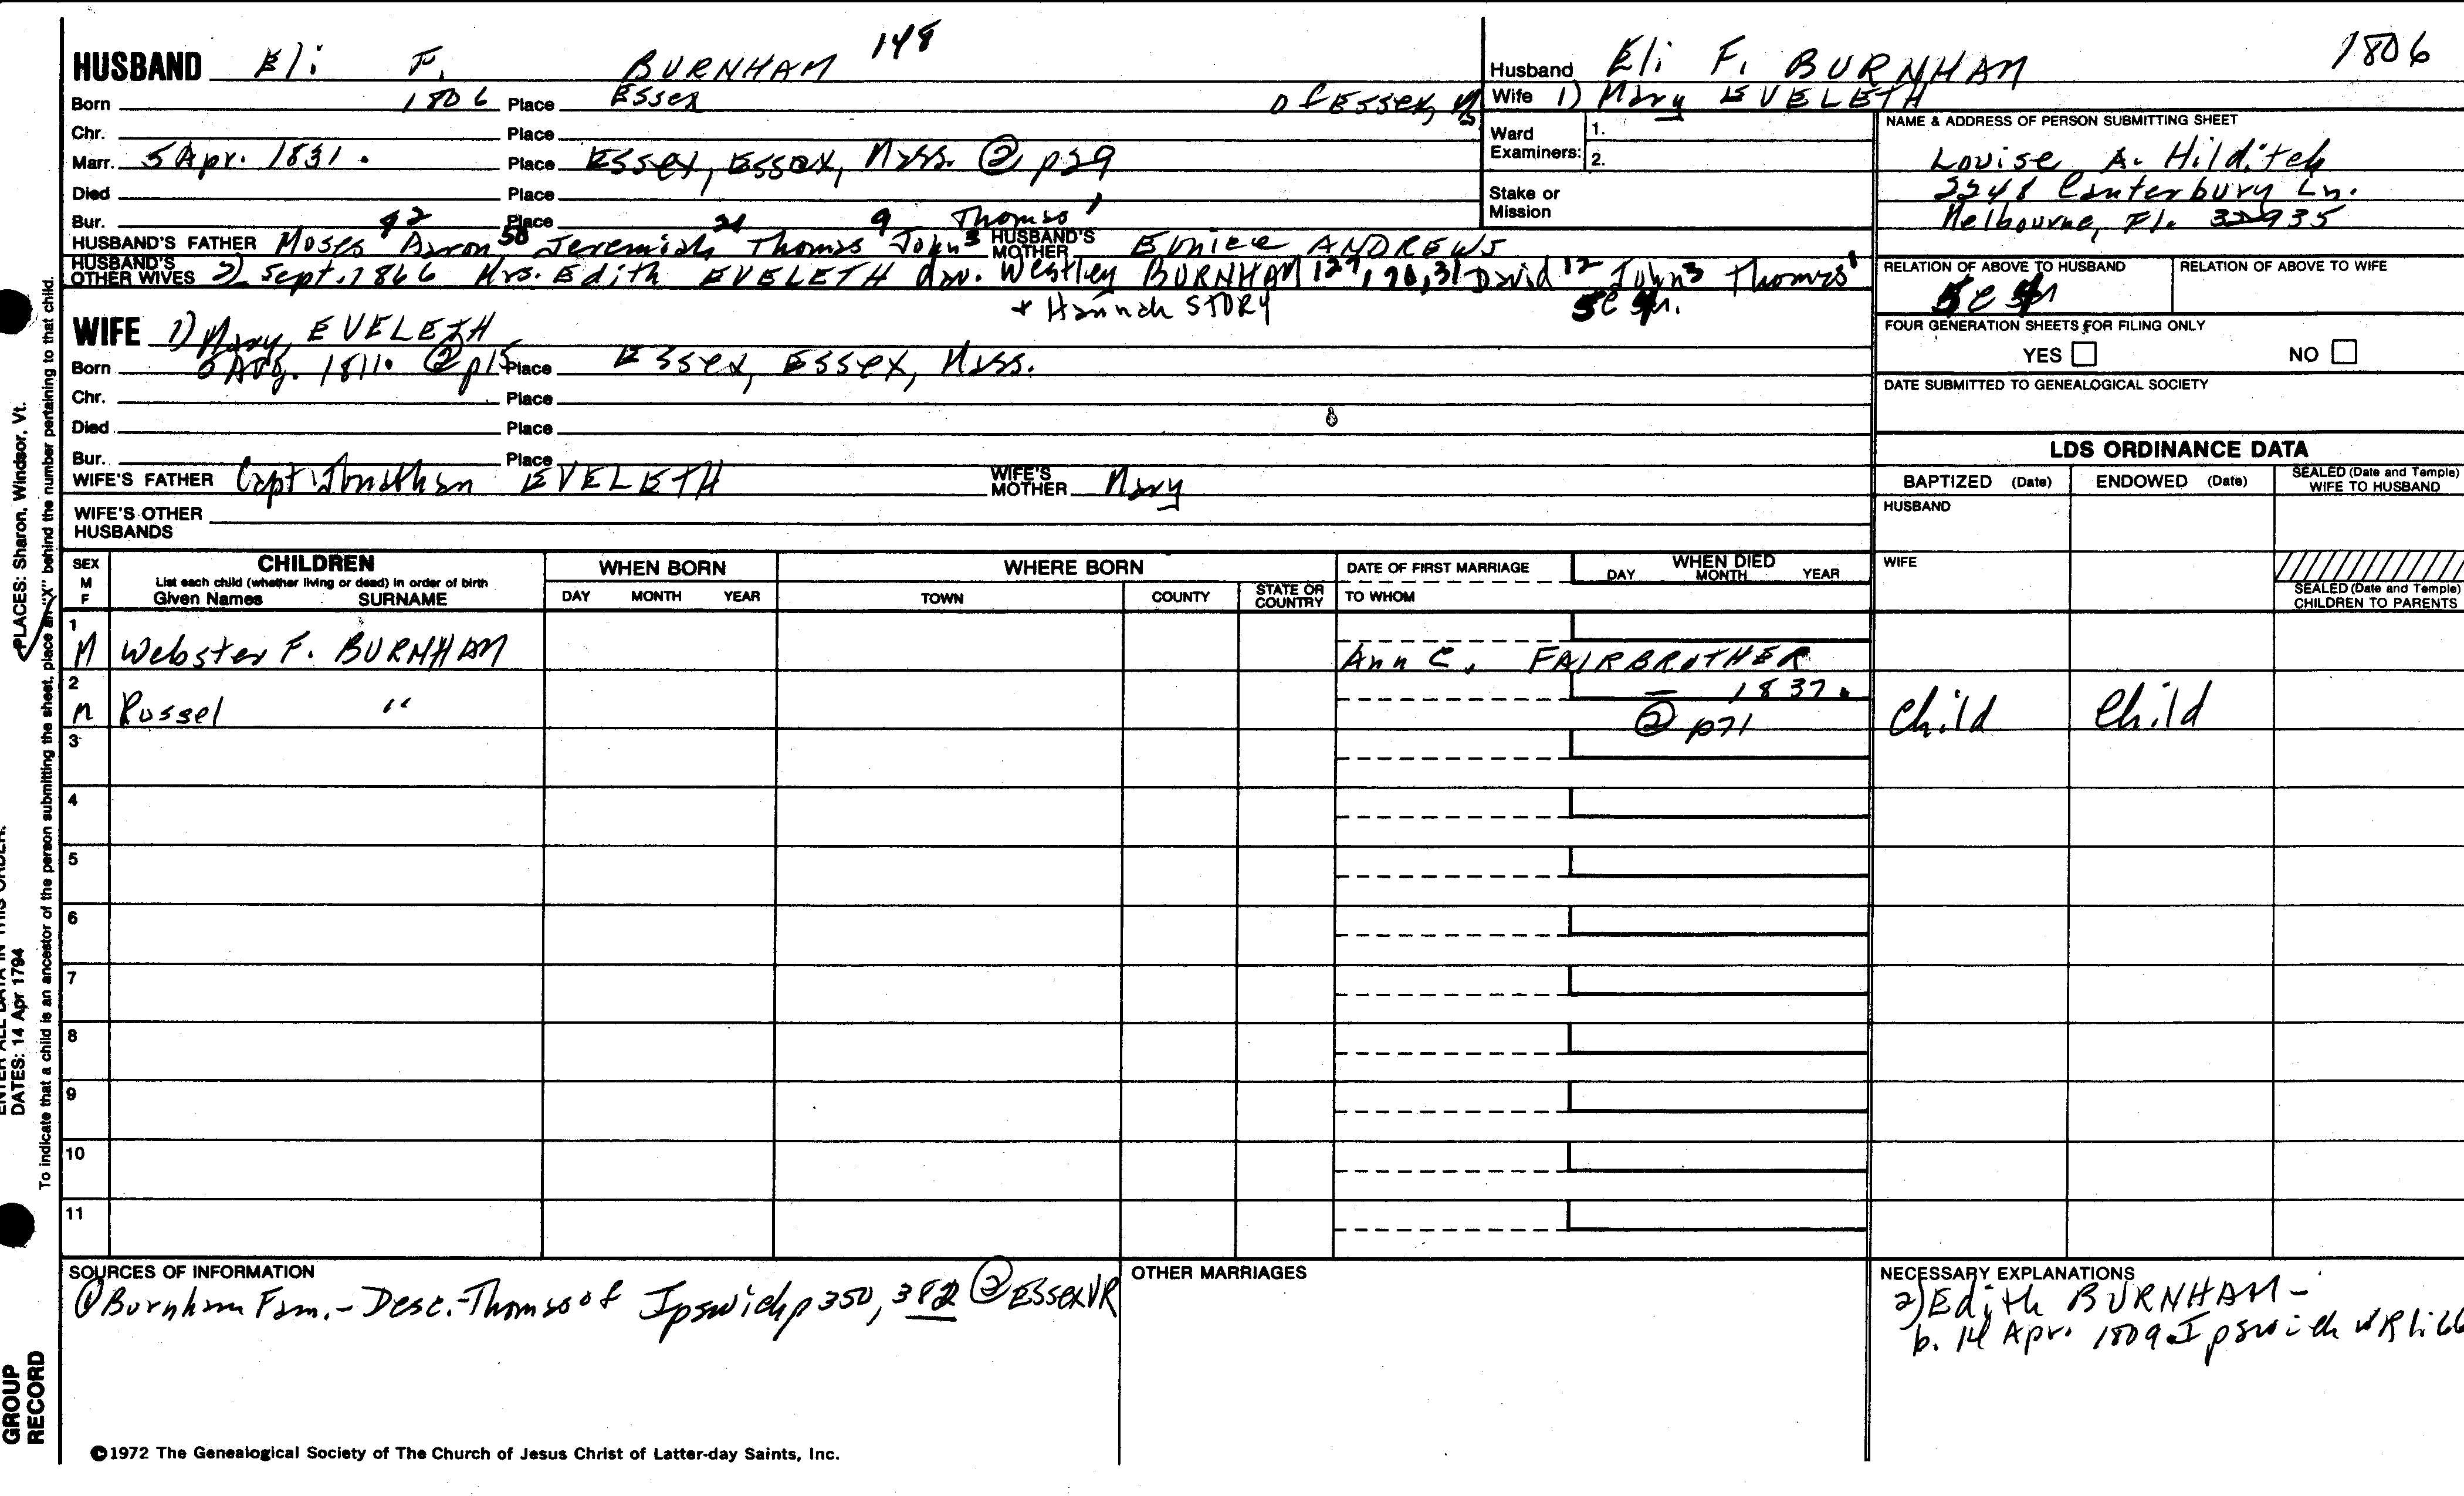 HUSBAND Eli F. BURNHAM 148
Born 1806 Place Essex of Essex,
Chr. Place
Marr. 5 Apr. 1831. Place Essex, Essex, Mass. @ p29
Died Place
Bur. Place
42 50 21 9 Thomas 1
HUSBAND'S FATHER Moses Aaron Jeremiah Thomas John 3 HUSBAND'S MOTHER Eunice ANDREWS
HUSBAND'S OTHER WIVES 2) Sept. 1866 Mrs. Edith EVELETH dau. Westley BURNHAM 127, 70, 31 David 12 John 3 Thomas 1
+ Hannah STORY
WIFE 1) Mary EVELETH
Born Aug. 1811. @ p15 Place Essex, Essex, Mass.
Chr. Place
Died Place
Bur. Place
WIFE'S FATHER Capt Jonathan EVELETH WIFE'S MOTHER Mary
WIFE'S OTHER HUSBANDS
Husband Eli F. BURNHAM 1806
Wife 1) Mary EVELETH
Ward Examiners: 1.
2.
Stake or Mission
NAME & ADDRESS OF PERSON SUBMITTING SHEET
Louise A. Hilditch
2248 Canterbury Ln.
Melbourne, Fl. 32935
RELATION OF ABOVE TO HUSBAND RELATION OF ABOVE TO WIFE
FOUR GENERATION SHEETS FOR FILING ONLY
YES NO
DATE SUBMITTED TO GENEALOGICAL SOCIETY
LDS ORDINANCE DATA
BAPTIZED (Date) ENDOWED (Date) SEALED (Date and Temple) WIFE TO HUSBAND
HUSBAND
WIFE
SEALED (Date and Temple) CHILDREN TO PARENTS
SEX M F
CHILDREN
List each child (whether living or dead) in order of birth
Given Names SURNAME
WHEN BORN
DAY MONTH YEAR
WHERE BORN
TOWN COUNTY STATE OR COUNTRY
DATE OF FIRST MARRIAGE
TO WHOM
WHEN DIED
DAY MONTH YEAR
1
M Webster F. BURNHAM Ann C. FAIRBROTHER
2 — 1837.
M Russel " @ p71 Child Child
3
4
5
6
7
8
9
10
11
SOURCES OF INFORMATION
① Burnham Fam. - Desc. - Thomas of Ipswich p350, 382 ② Essex VR
OTHER MARRIAGES
NECESSARY EXPLANATIONS
2) Edith BURNHAM -
b. 14 Apr. 1809 Ipswich
©1972 The Genealogical Society of The Church of Jesus Christ of Latter-day Saints, Inc.
PLACES: Sharon, Windsor, Vt.
DATES: 14 Apr 1794
To indicate that a child is an ancestor of the person submitting the sheet, place an "X" behind the number pertaining to that child.
GROUP
RECORD